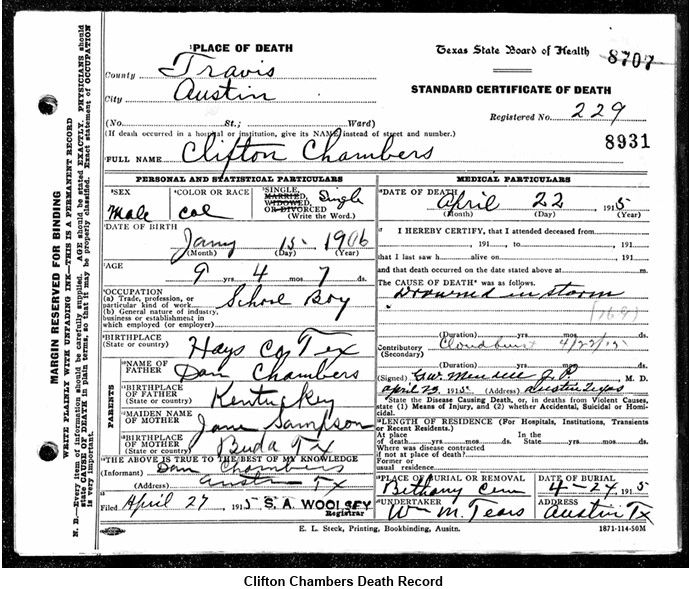 PLACE OF DEATH
Texas State Board of Health
8707
County Travis
City Austin
STANDARD CERTIFICATE OF DEATH
Registered No. 229
(No. St.; Ward)
(If death occurred in a hospital or institution, give its NAME instead of street and number.)
8931
FULL NAME Clifton Chambers
PERSONAL AND STATISTICAL PARTICULARS
SEX
Male
COLOR OR RACE
Col
SINGLE,
MARRIED,
WIDOWED,
OR DIVORCED
(Write the Word.)
Single
DATE OF BIRTH
Jany 15 1906
(Month) (Day) (Year)
AGE
9 yrs. 4 mos. 7 ds.
OCCUPATION
(a) Trade, profession, or
particular kind of work
School Boy
(b) General nature of industry,
business or establishment in
which employed (or employer)
BIRTHPLACE
(State or country)
Hays Co Tex
PARENTS
NAME OF
FATHER
Dan Chambers
BIRTHPLACE
OF FATHER
(State or country)
Kentucky
MAIDEN NAME
OF MOTHER
Jane Sampson
BIRTHPLACE
OF MOTHER
(State or country)
Buda Tx
THE ABOVE IS TRUE TO THE BEST OF MY KNOWLEDGE
(Informant) Dan Chambers
(Address) Austin Tx
Filed April 27 1915 S. A. WOOLSEY
Registrar
MEDICAL PARTICULARS
DATE OF DEATH
April 22 1915
(Month) (Day) (Year)
I HEREBY CERTIFY, that I attended deceased from
, 191 , to , 191
that I last saw h alive on , 191
and that death occurred on the date stated above at m.
The CAUSE OF DEATH* was as follows.
Drowned in storm
(Duration) yrs. mos. ds.
Contributory Cloudburst 4/22/15
(Secondary)
(Duration) yrs. mos. ds.
(Signed) Geo. Mendell M. D.
April 23 1915 (Address) Austin Texas
*State the Disease Causing Death, or, in deaths from Violent Causes,
state (1) Means of Injury, and (2) whether Accidental, Suicidal or Homi-
cidal.
LENGTH OF RESIDENCE (For Hospitals, Institutions, Transients
or Recent Residents.)
At place In the
of death yrs. mos. ds. State yrs. mos. ds.
Where was disease contracted
if not at place of death?
Former or
usual residence
PLACE OF BURIAL OR REMOVAL
Bethany Cem
DATE OF BURIAL
4-24 1915
UNDERTAKER
Wm M. Tears
ADDRESS
Austin Tx
E. L. Steck, Printing, Bookbinding, Austin.
1871-114-50M
MARGIN RESERVED FOR BINDING
WRITE PLAINLY WITH UNFADING INK—THIS IS A PERMANENT RECORD
N. B.—Every item of information should be carefully supplied. AGE should be stated EXACTLY. PHYSICIANS should
state CAUSE OF DEATH in plain terms, so that it may be properly classified. Exact statement of OCCUPATION
is very important.
Clifton Chambers Death Record